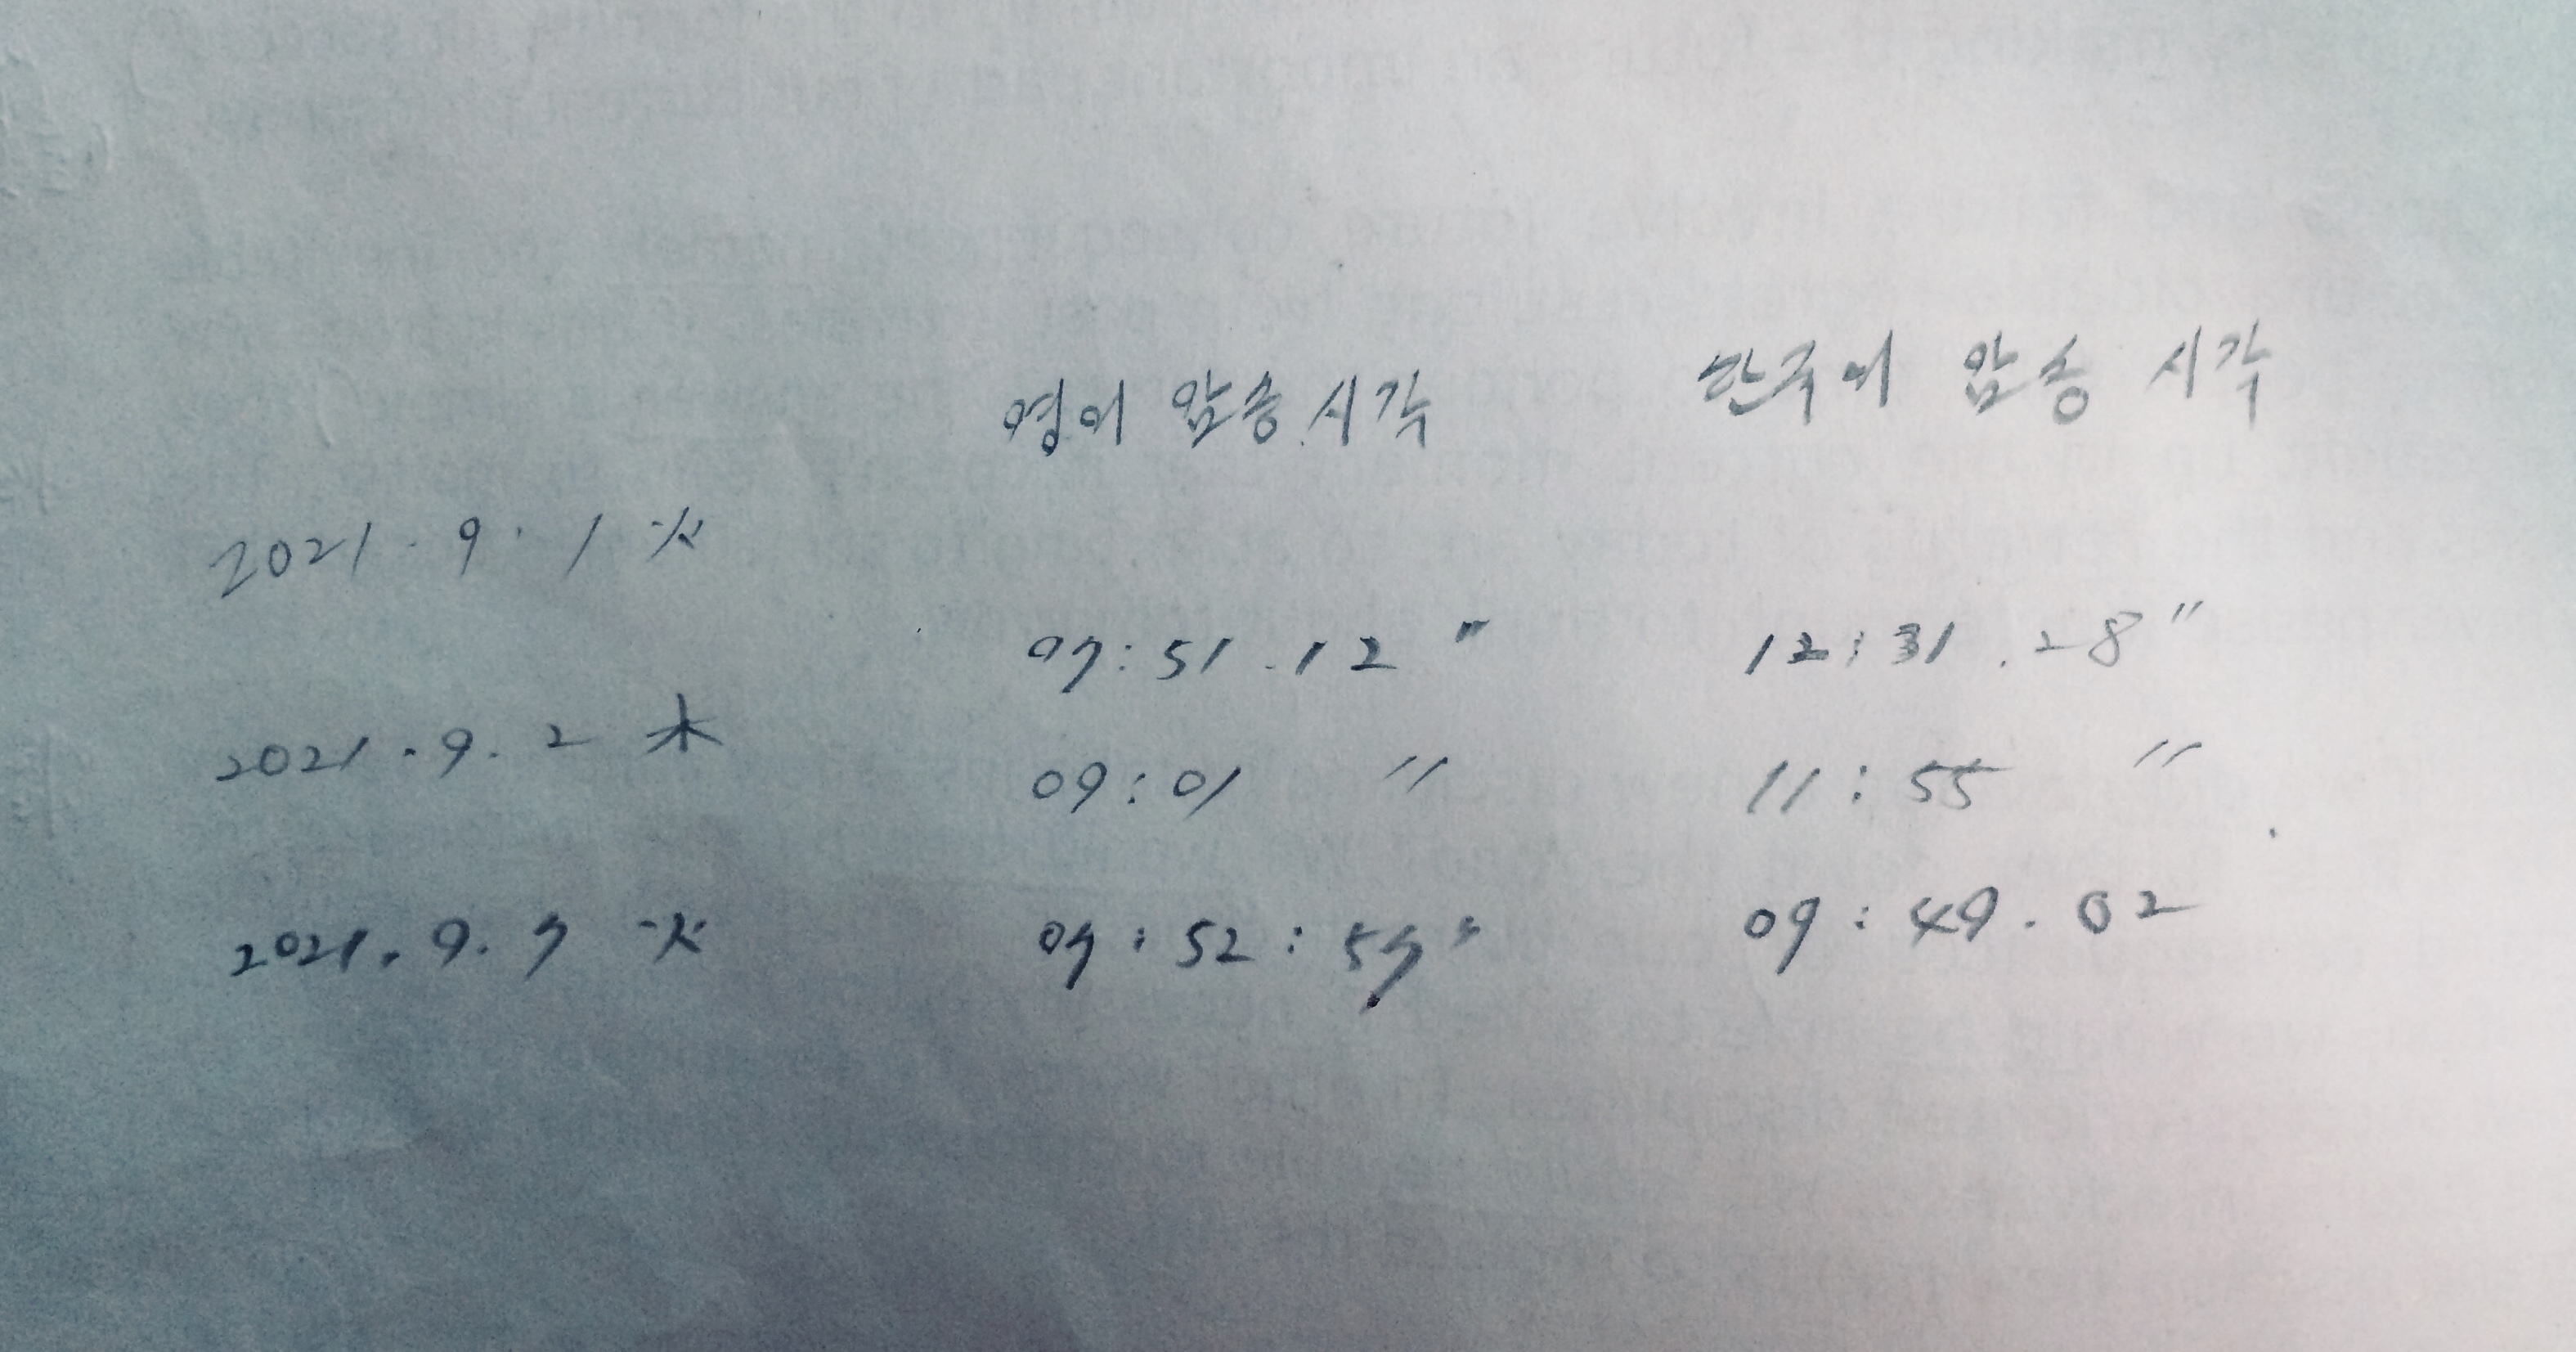 영어 암송 시각 한국어 암송 시각
2021. 9. 1 火
07:51.12 " 12:31.28"
2021.9.2 木
09:01 " 11:55 "
2021.9.7 火 07:52:57" 09:49.02